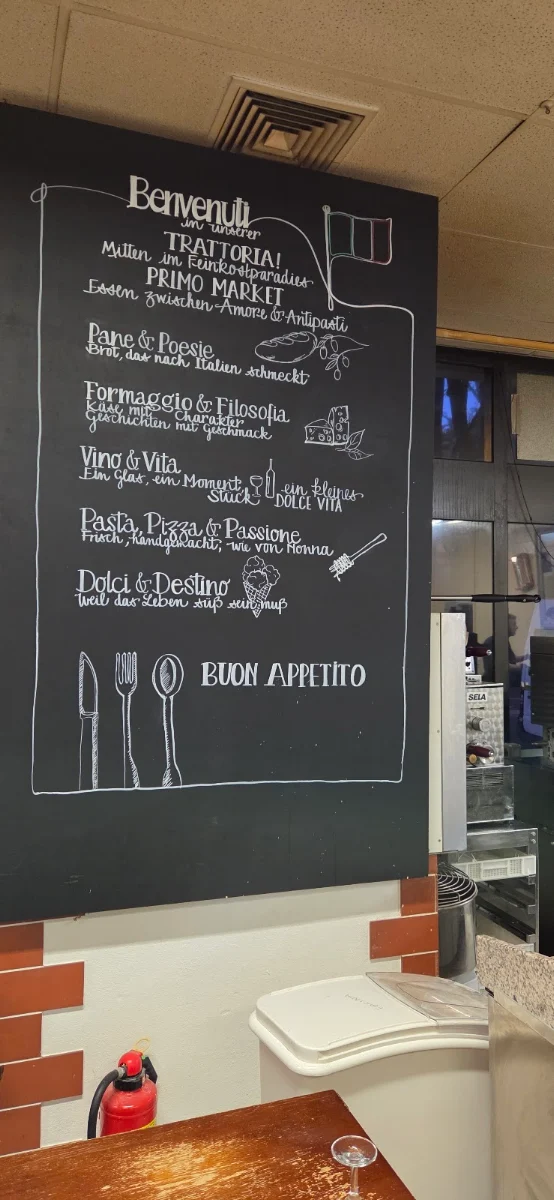 Benvenuti
in unserer
TRATTORIA!
Mitten im Feinkostparadies
PRIMO MARKET
Essen zwischen Amore & Antipasti
Pane & Poesie
Brot, das nach Italien schmeckt
Formaggio & Filosofia
Käse mit Charakter
Geschichten mit Geschmack
Vino & Vita
Ein Glas, ein Moment, ein kleines
Stück DOLCE VITA
Pasta, Pizza & Passione
Frisch, handgemacht, wie von Nonna
Dolci & Destino
Weil das Leben süß sein muß
BUON APPETITO
SELA